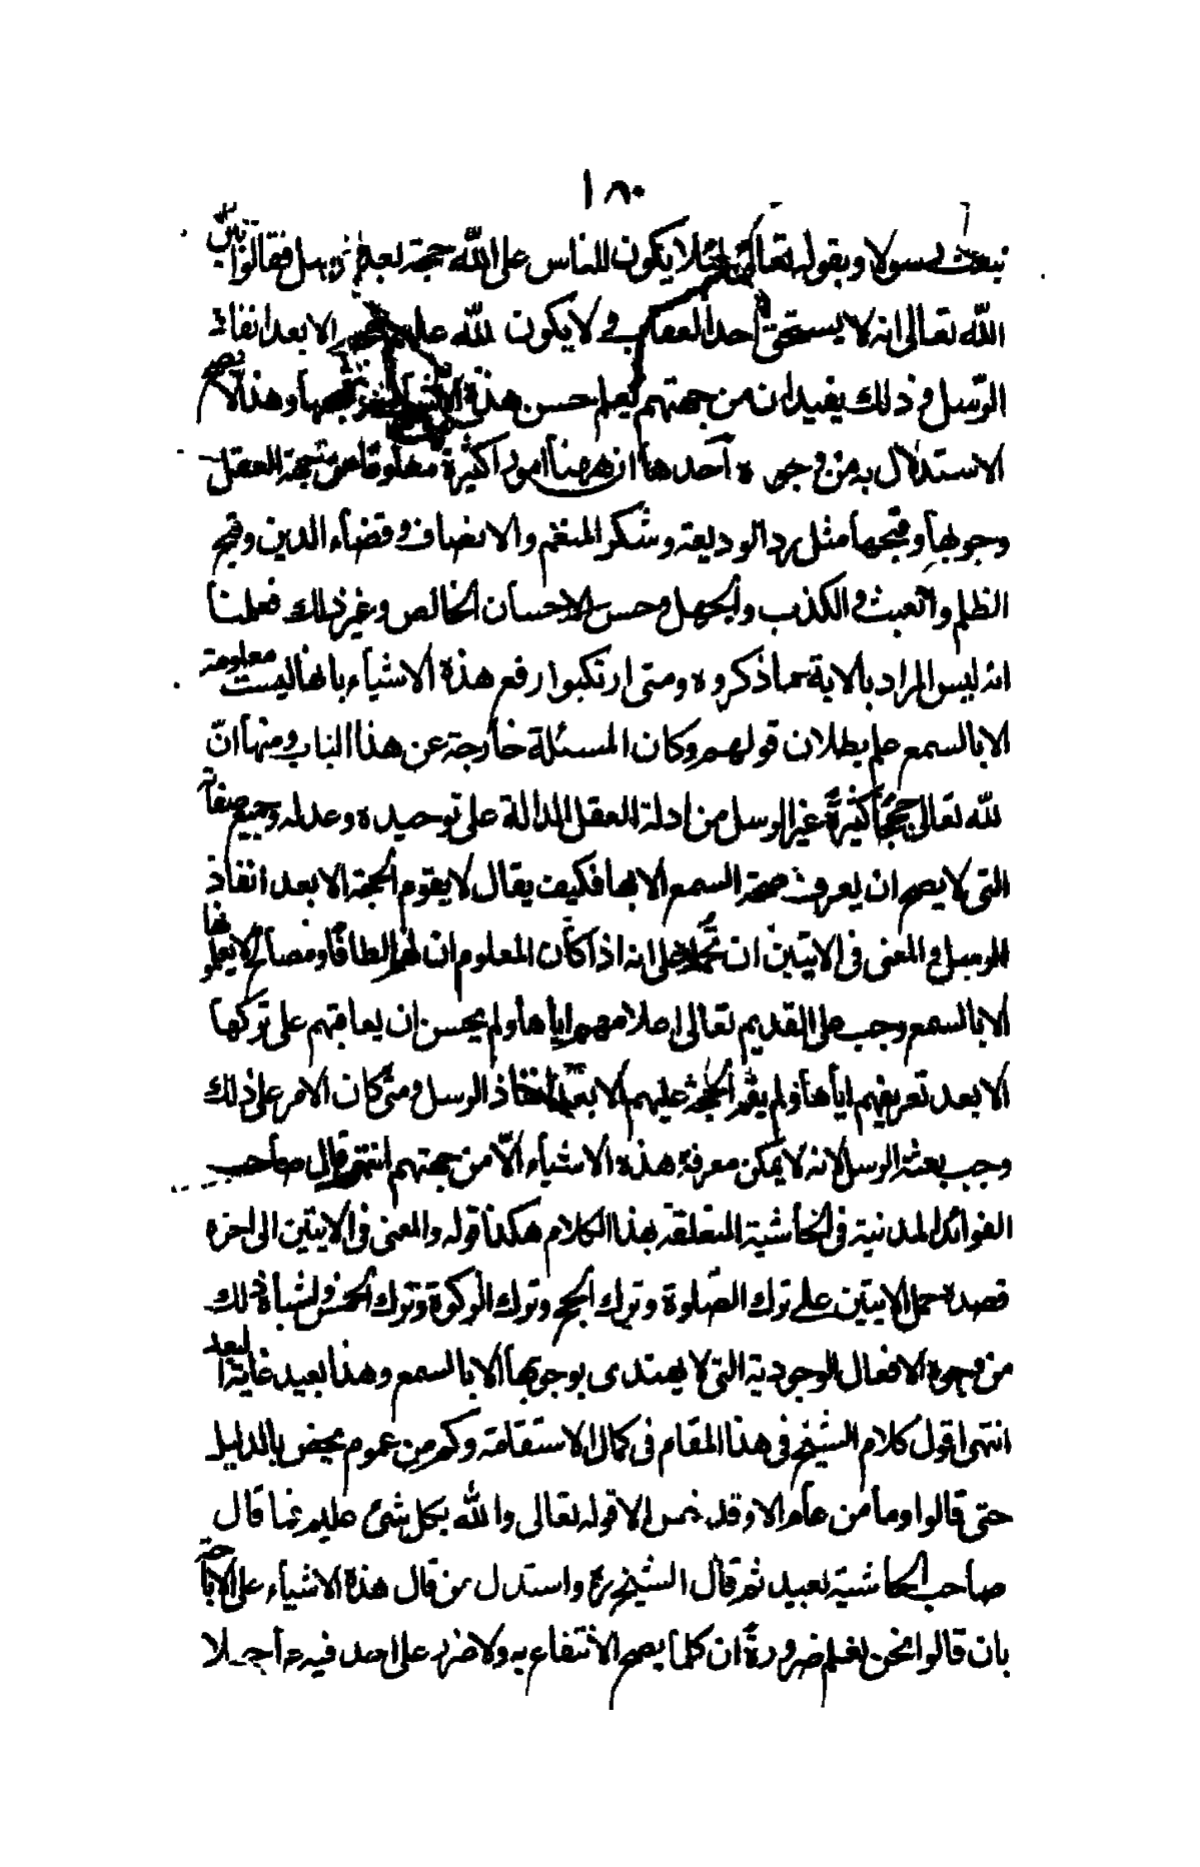 ١٨٠
نبعث رسولا وبقوله تعالى لئلا يكون للناس على الله حجة بعد الرسل فقالوا بيّن
الله تعالى انه لا يستحق احد العقاب ولا يكون لله عليهم الا بعد انفاذ
الرسل وفي ذلك يفيد ان من جهتهم يعلم حسن هذه الاشياء وقبحها وهذا لا يصح
الاستدلال به من وجوه احدها ان ههنا امورا كثيرة معلوما من جهة العقل
وجوبها وقبحها مثل رد الوديعة وشكر المنعم والانصاف وقضاء الدين وقبح
الظلم والعبث والكذب والجهل وحسن الاحسان الخالص وغير ذلك فعلمنا
انه ليس المراد بالاية ما ذكروه ومتى ارتكبوا رفع هذه الاشياء بانها ليست معلومة
الا بالسمع علم بطلان قولهم وكان المسئلة خارجة عن هذا الباب ومنها انّ
لله تعالى حججا كثيرة غير الرسل من ادلة العقل الدالة على توحيده وعدله وجميع صفاته
التي لا يصح ان يعرف صحة السمع الا بها فكيف يقال لا يقوم الحجة الا بعد انفاذ
الرسل والمعنى في الايتين ان تحملا على انه اذا كان المعلوم ان لهم الطافا ومصالح لا يعلمونها
الا بالسمع وجب على القديم تعالى اعلامهم اياها ولم يحسن ان يعاقبهم على تركها
الا بعد تعريفهم اياها ولم يقم الحجة عليهم الا بعد انفاذ الرسل ومتى كان الامر على ذلك
وجب بعثة الرسل لانه لا يمكن معرفة هذه الاشياء الّا من جهتهم انتهى قال صاحب
الفوائد المدنية في الحاشية المتعلقة بهذا الكلام هكذا قوله والمعنى في الايتين الى اخره
قصده حمل الايتين على ترك الصّلوة وترك الحج وترك الزكوة وترك الخمس واشباه ذلك
من وجوه الافعال الوجودية التي لا يهتدى بوجوبها الا بالسمع وهذا بعيد غاية البعد
انتهى اقول كلام الشيخ في هذا المقام في كمال الاستقامة وكم من عموم يخص بالدليل
حتى قالوا وما من عام الا وقد خص الا قوله تعالى والله بكل شئ عليم فما قال
صاحب الحاشية بعيد ثم قال الشيخ ره واستدل من قال هذه الاشياء على الاباحة
بان قالوا نحن نعلم ضرورة ان كلما يصح الانتفاع به ولا ضرر على احد فيه عاجلا